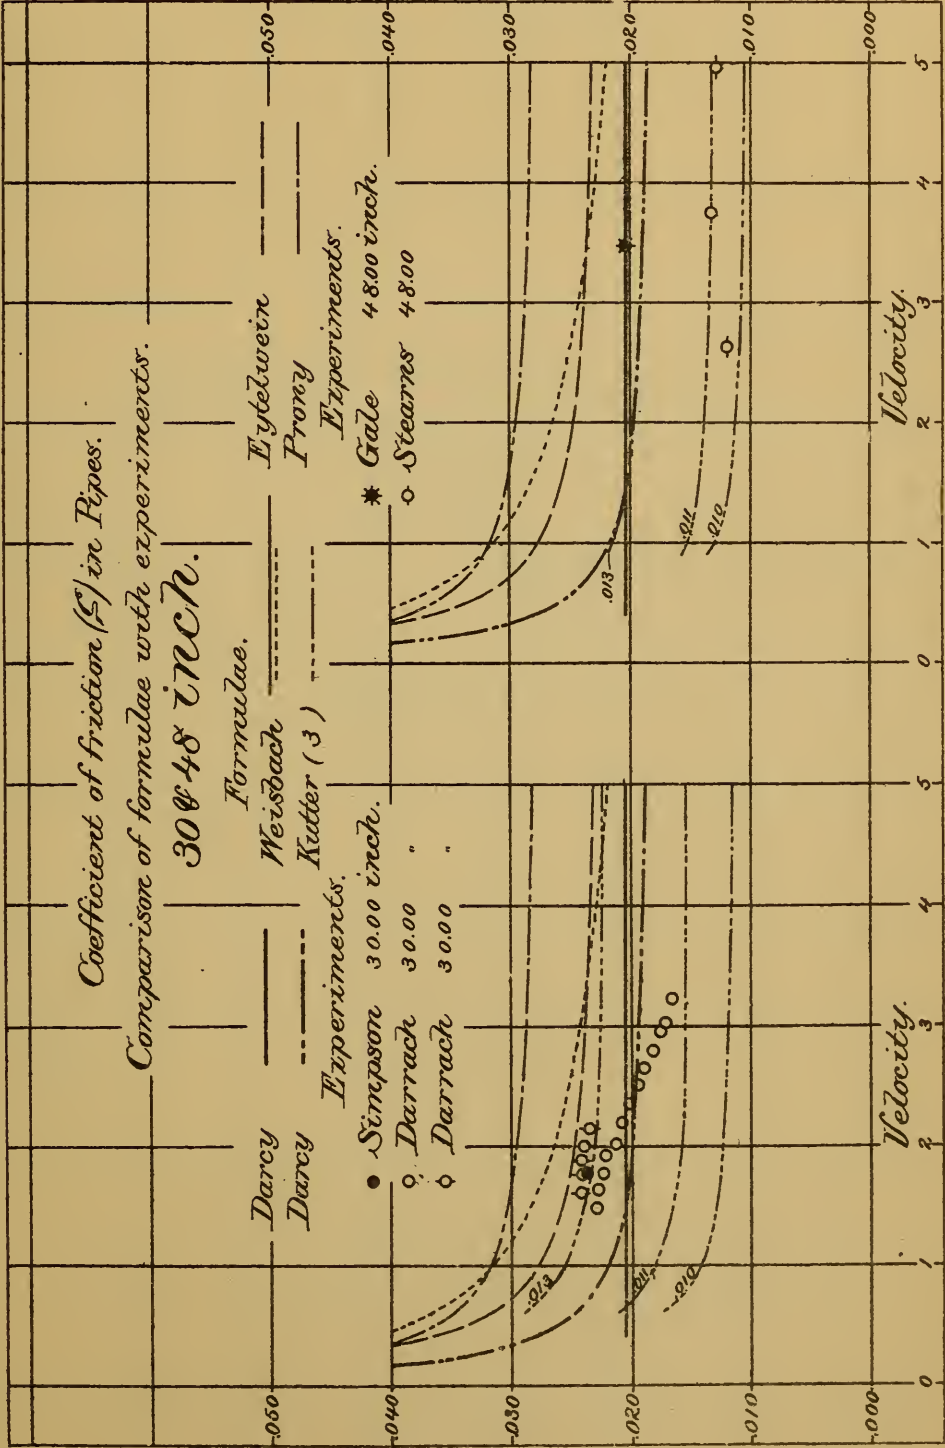 Coefficient of friction (ζ) in Pipes.
Comparison of formulae with experiments.
30 & 48 inch.
Formulae.
Darcy
Darcy
Weisbach
Kutter (3)
Eytelwein
Prony
Experiments.
Simpson 30.00 inch.
Darrach 30.00 "
Darrach 30.00 "
Experiments.
Gale 48.00 inch.
Stearns 48.00
.050
.040
.030
.020
.010
.000
.050
.040
.030
.020
.010
.000
.013
.011
.010
.013
.011
.010
0 1 2 3 4 5
Velocity.
0 1 2 3 4 5
Velocity.